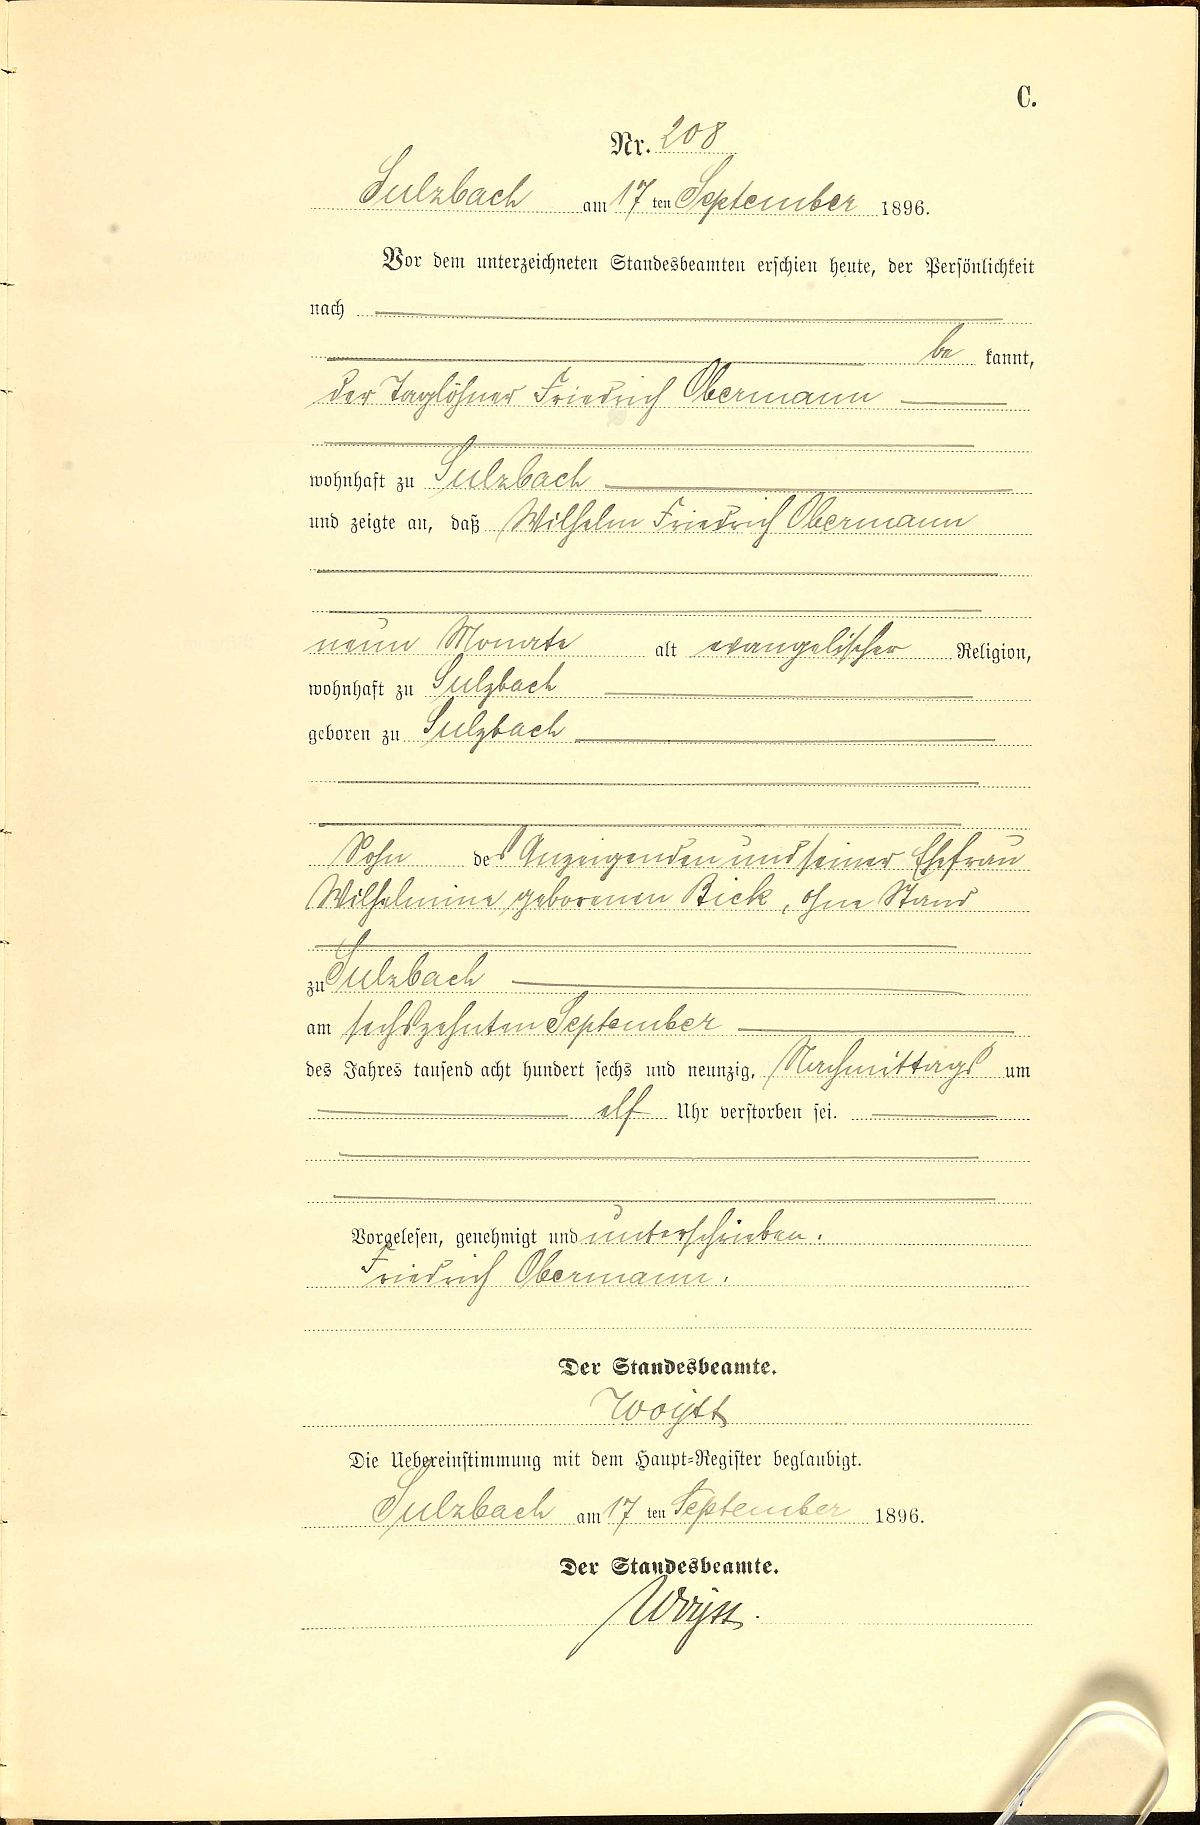 C.
Nr. 208
Sulzbach am 17 ten September 1896.
Vor dem unterzeichneten Standesbeamten erschien heute, der Persönlichkeit
nach
be kannt,
der Taglöhner Friedrich Obermann
wohnhaft zu Sulzbach
und zeigte an, daß Wilhelm Friedrich Obermann
neun Monate alt evangelischer Religion,
wohnhaft zu Sulzbach
geboren zu Sulzbach
Sohn des Anzeigenden und seiner Ehefrau
Wilhelmine geborenen Bick, ohne Stand
zu Sulzbach
am sechszehnten September
des Jahres tausend acht hundert sechs und neunzig, Nachmittags um
elf Uhr verstorben sei.
Vorgelesen, genehmigt und unterschrieben.
Friedrich Obermann.
Der Standesbeamte.
Woytt
Die Uebereinstimmung mit dem Haupt-Register beglaubigt.
Sulzbach am 17 ten September 1896.
Der Standesbeamte.
Woytt.